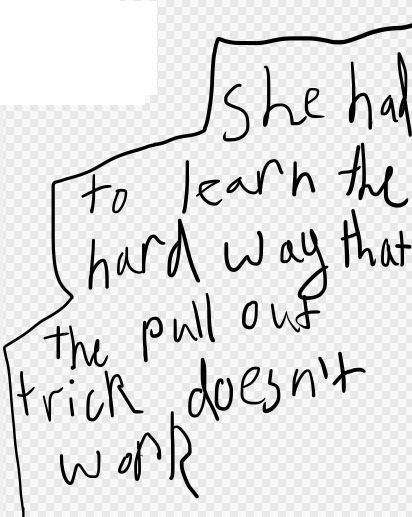 She had
to learn the
hard way that
the pull out
trick doesn't
work